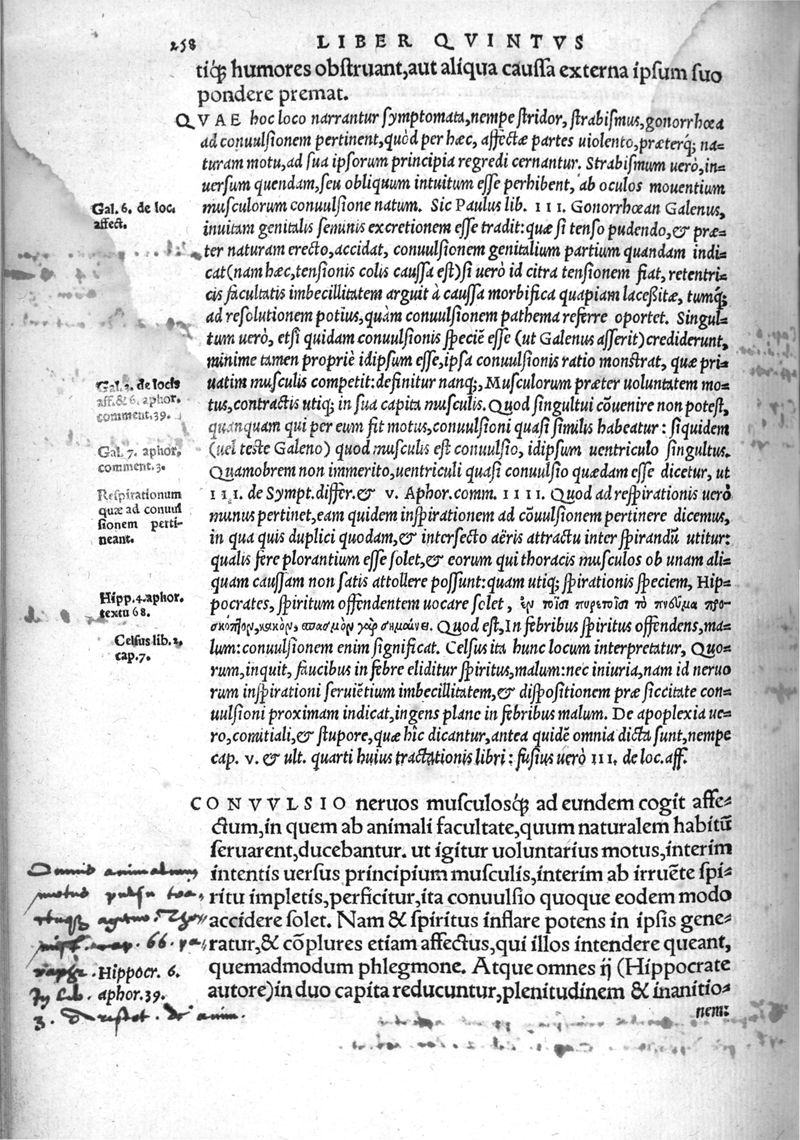 258 LIBER QVINTVS
tiq́; humores obstruant,aut aliqua caussa externa ipsum suo
pondere premat.
QVAE hoc loco narrantur symptomata,nempe stridor, strabismus,gonorrhœa
ad conuulsionem pertinent,quòd per hæc, affectæ partes uiolento,præterq́; na=
turam motu,ad sua ipsorum principia regredi cernantur. Strabismum uerò,in=
uersum quendam,seu obliquum intuitum esse perhibent, ab oculos mouentium
Gal. 6. de loc.
affect.
musculorum conuulsione natum. Sic Paulus lib. III. Gonorrhœan Galenus,
inuitam genitalis seminis excretionem esse tradit:quæ si tenso pudendo,& præ=
ter naturam erecto,accidat, conuulsionem genitalium partium quandam indi=
cat(nam hæc,tensionis colis caussa est)si uerò id citra tensionem fiat, retentri=
cis facultatis imbecillitatem arguit à caussa morbifica quapiam lacessitæ, tumq́;
ad resolutionem potius,quàm conuulsionem pathema referre oportet. Singul=
tum uerò, etsi quidam conuulsionis speciē esse (ut Galenus asserit)crediderunt,
minime tamen propriè idipsum esse,ipsa conuulsionis ratio monstrat, quæ pri=
Gal.3. de locis
aff.& 6. aphor.
comment.39.
uatim musculis competit:definitur nanq;,Musculorum præter uoluntatem mo=
tus,contractis utiq; in sua capita musculis.Quod singultui cōuenire non potest,
quanquam qui per eum fit motus,conuulsioni quasi similis habeatur : siquidem
Gal. 7. aphor.
comment.3.
(uel teste Galeno) quod musculis est conuulsio, idipsum uentriculo singultus.
Quamobrem non immerito,uentriculi quasi conuulsio quædam esse dicetur, ut
Respirationum
quæ ad conuul
sionem perti-
neant.
III. de Sympt.differ.& v. Aphor.comm. IIII. Quod ad respirationis uerò
munus pertinet,eam quidem inspirationem ad cōuulsionem pertinere dicemus,
in qua quis duplici quodam,& intersecto aëris attractu inter spirandū utitur:
qualis fere plorantium esse solet,& eorum qui thoracis musculos ob unam ali=
quam caussam non satis attollere possunt:quam utiq; spirationis speciem, Hip=
Hipp.4.aphor.
textu 68.
pocrates, spiritum offendentem uocare solet, ἐν τοῖσι πυρετοῖσι τὸ πνεῦμα προ-
σκόπτον,κακὸν, σπασμὸν γὰρ σημαίνει. Quod est,In febribus spiritus offendens,ma=
Celsus lib. 2.
cap.7.
lum:conuulsionem enim significat. Celsus ita hunc locum interpretatur, Quo=
rum,inquit, faucibus in febre eliditur spiritus,malum:nec iniuria,nam id neruo
rum inspirationi seruiētium imbecillitatem,& dispositionem præ siccitate con=
uulsioni proximam indicat,ingens plane in febribus malum. De apoplexia ue=
ro,comitiali,& stupore,quæ hîc dicantur,antea quidē omnia dicta sunt,nempe
cap. v. & ult. quarti huius tractationis libri : fusius uerò III. de loc.aff.
CONVVLSIO neruos musculosq́; ad eundem cogit affe-
ctum,in quem ab animali facultate,quum naturalem habitū
seruarent,ducebantur. ut igitur uoluntarius motus,interim
intentis uersus principium musculis,interim ab irruēte spi-
ritu impletis,perficitur,ita conuulsio quoque eodem modo
accidere solet. Nam & spiritus inflare potens in ipsis gene-
ratur,& cōplures etiam affectus,qui illos intendere queant,
Hippocr. 6.
aphor.39.
quemadmodum phlegmone. Atque omnes ij (Hippocrate
autore)in duo capita reducuntur,plenitudinem & inanitio-
nem:
Omnis animalium
motus pulsu
66.